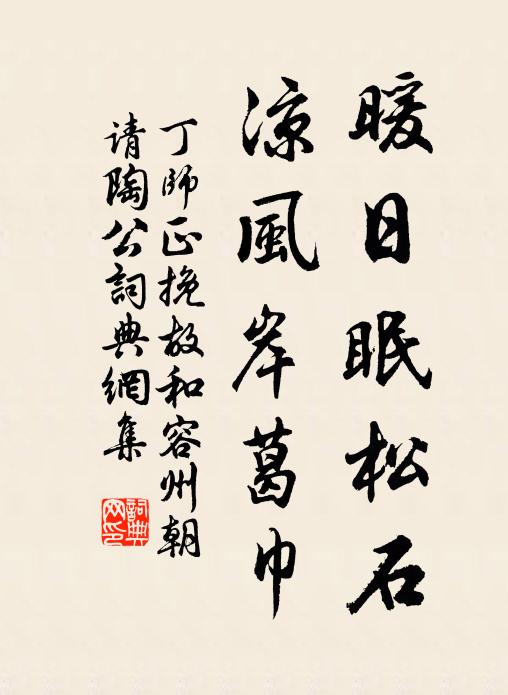 暖日眠松石
凉風岸葛巾
丁師正挽故和容州朝
请陶公詞典網集
詞典網印